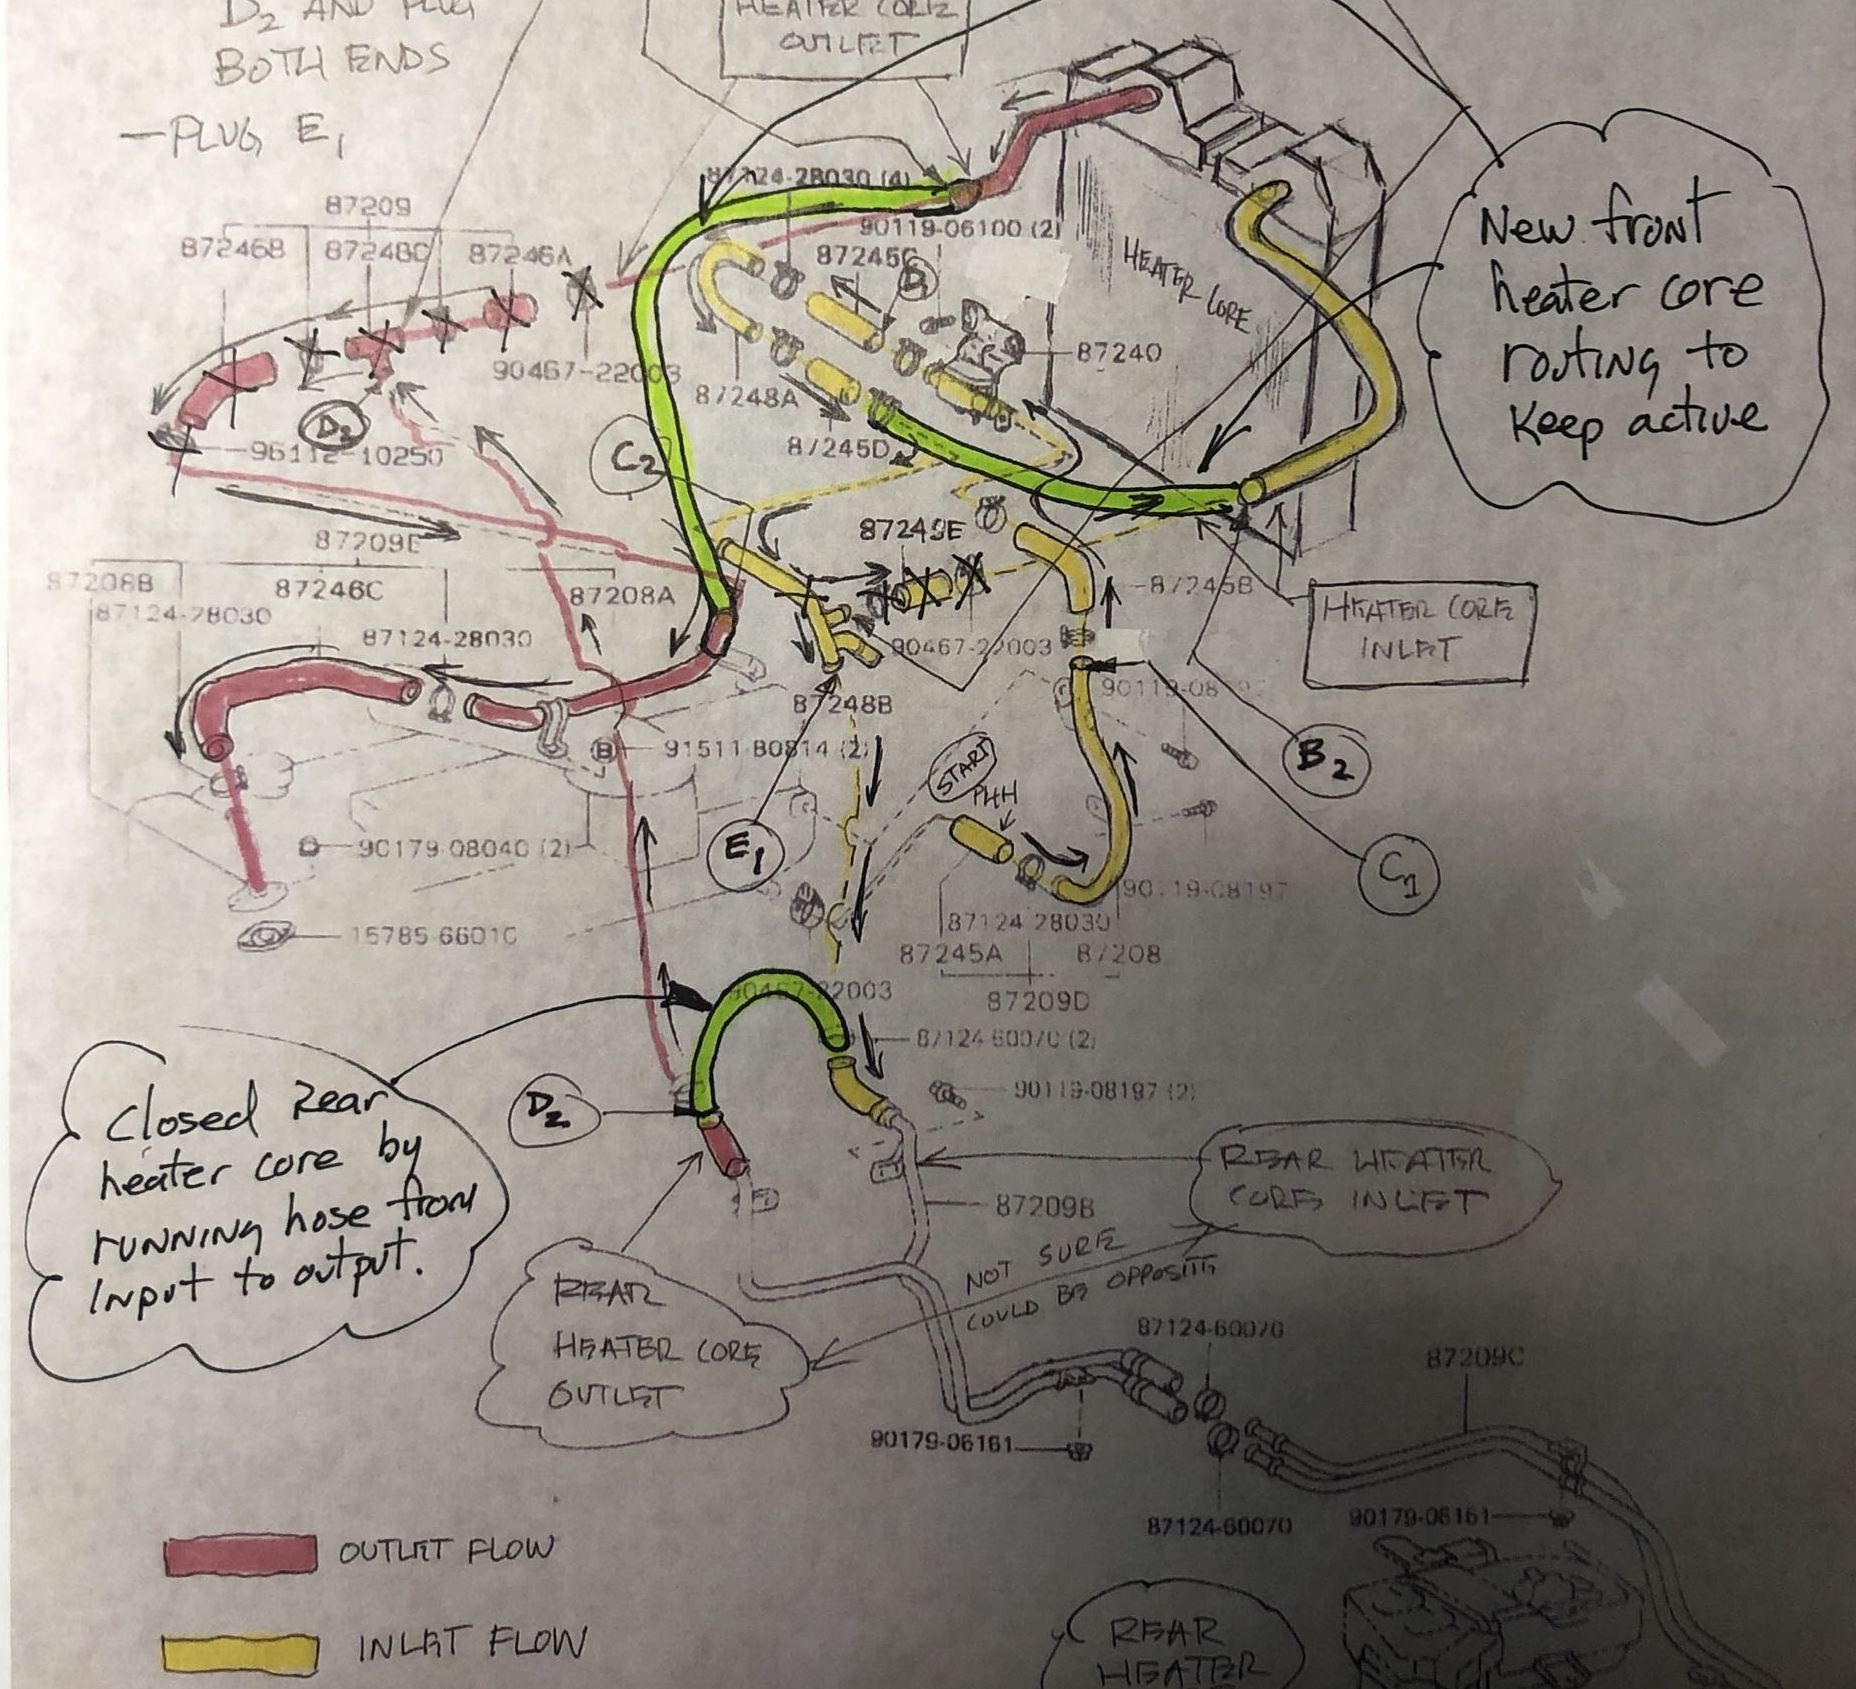 D2 AND PLUG
BOTH ENDS
- PLUG E1
HEATER CORE
OUTLET
87209
87246B
87248C
87246A
87124-28030 (4)
90119-06100 (2)
87245C
D1
HEATER CORE
New front
heater core
routing to
keep active
87240
90467-22003
87248A
87245D
D2
96112-10250
C2
87209E
87208B
87246C
87208A
87124-28030
87124-28030
87245E
87245B
90467-22003
HEATER CORE
INLET
87248B
91511-80814 (2)
B
B2
START
PHH
E1
C1
90179-08040 (2)
90119-08197
15785-66010
87124-28030
87245A
87208
87209D
90467-22003
87124-60070 (2)
90119-08197 (2)
D2
Closed Rear
heater core by
running hose from
Input to output.
REAR HEATER
CORE INLET
87209B
NOT SURE
COULD BE OPPOSITE
REAR
HEATER CORE
OUTLET
87124-60070
87209C
90179-06161
87124-60070
90179-06161
OUTLET FLOW
INLET FLOW
REAR
HEATER